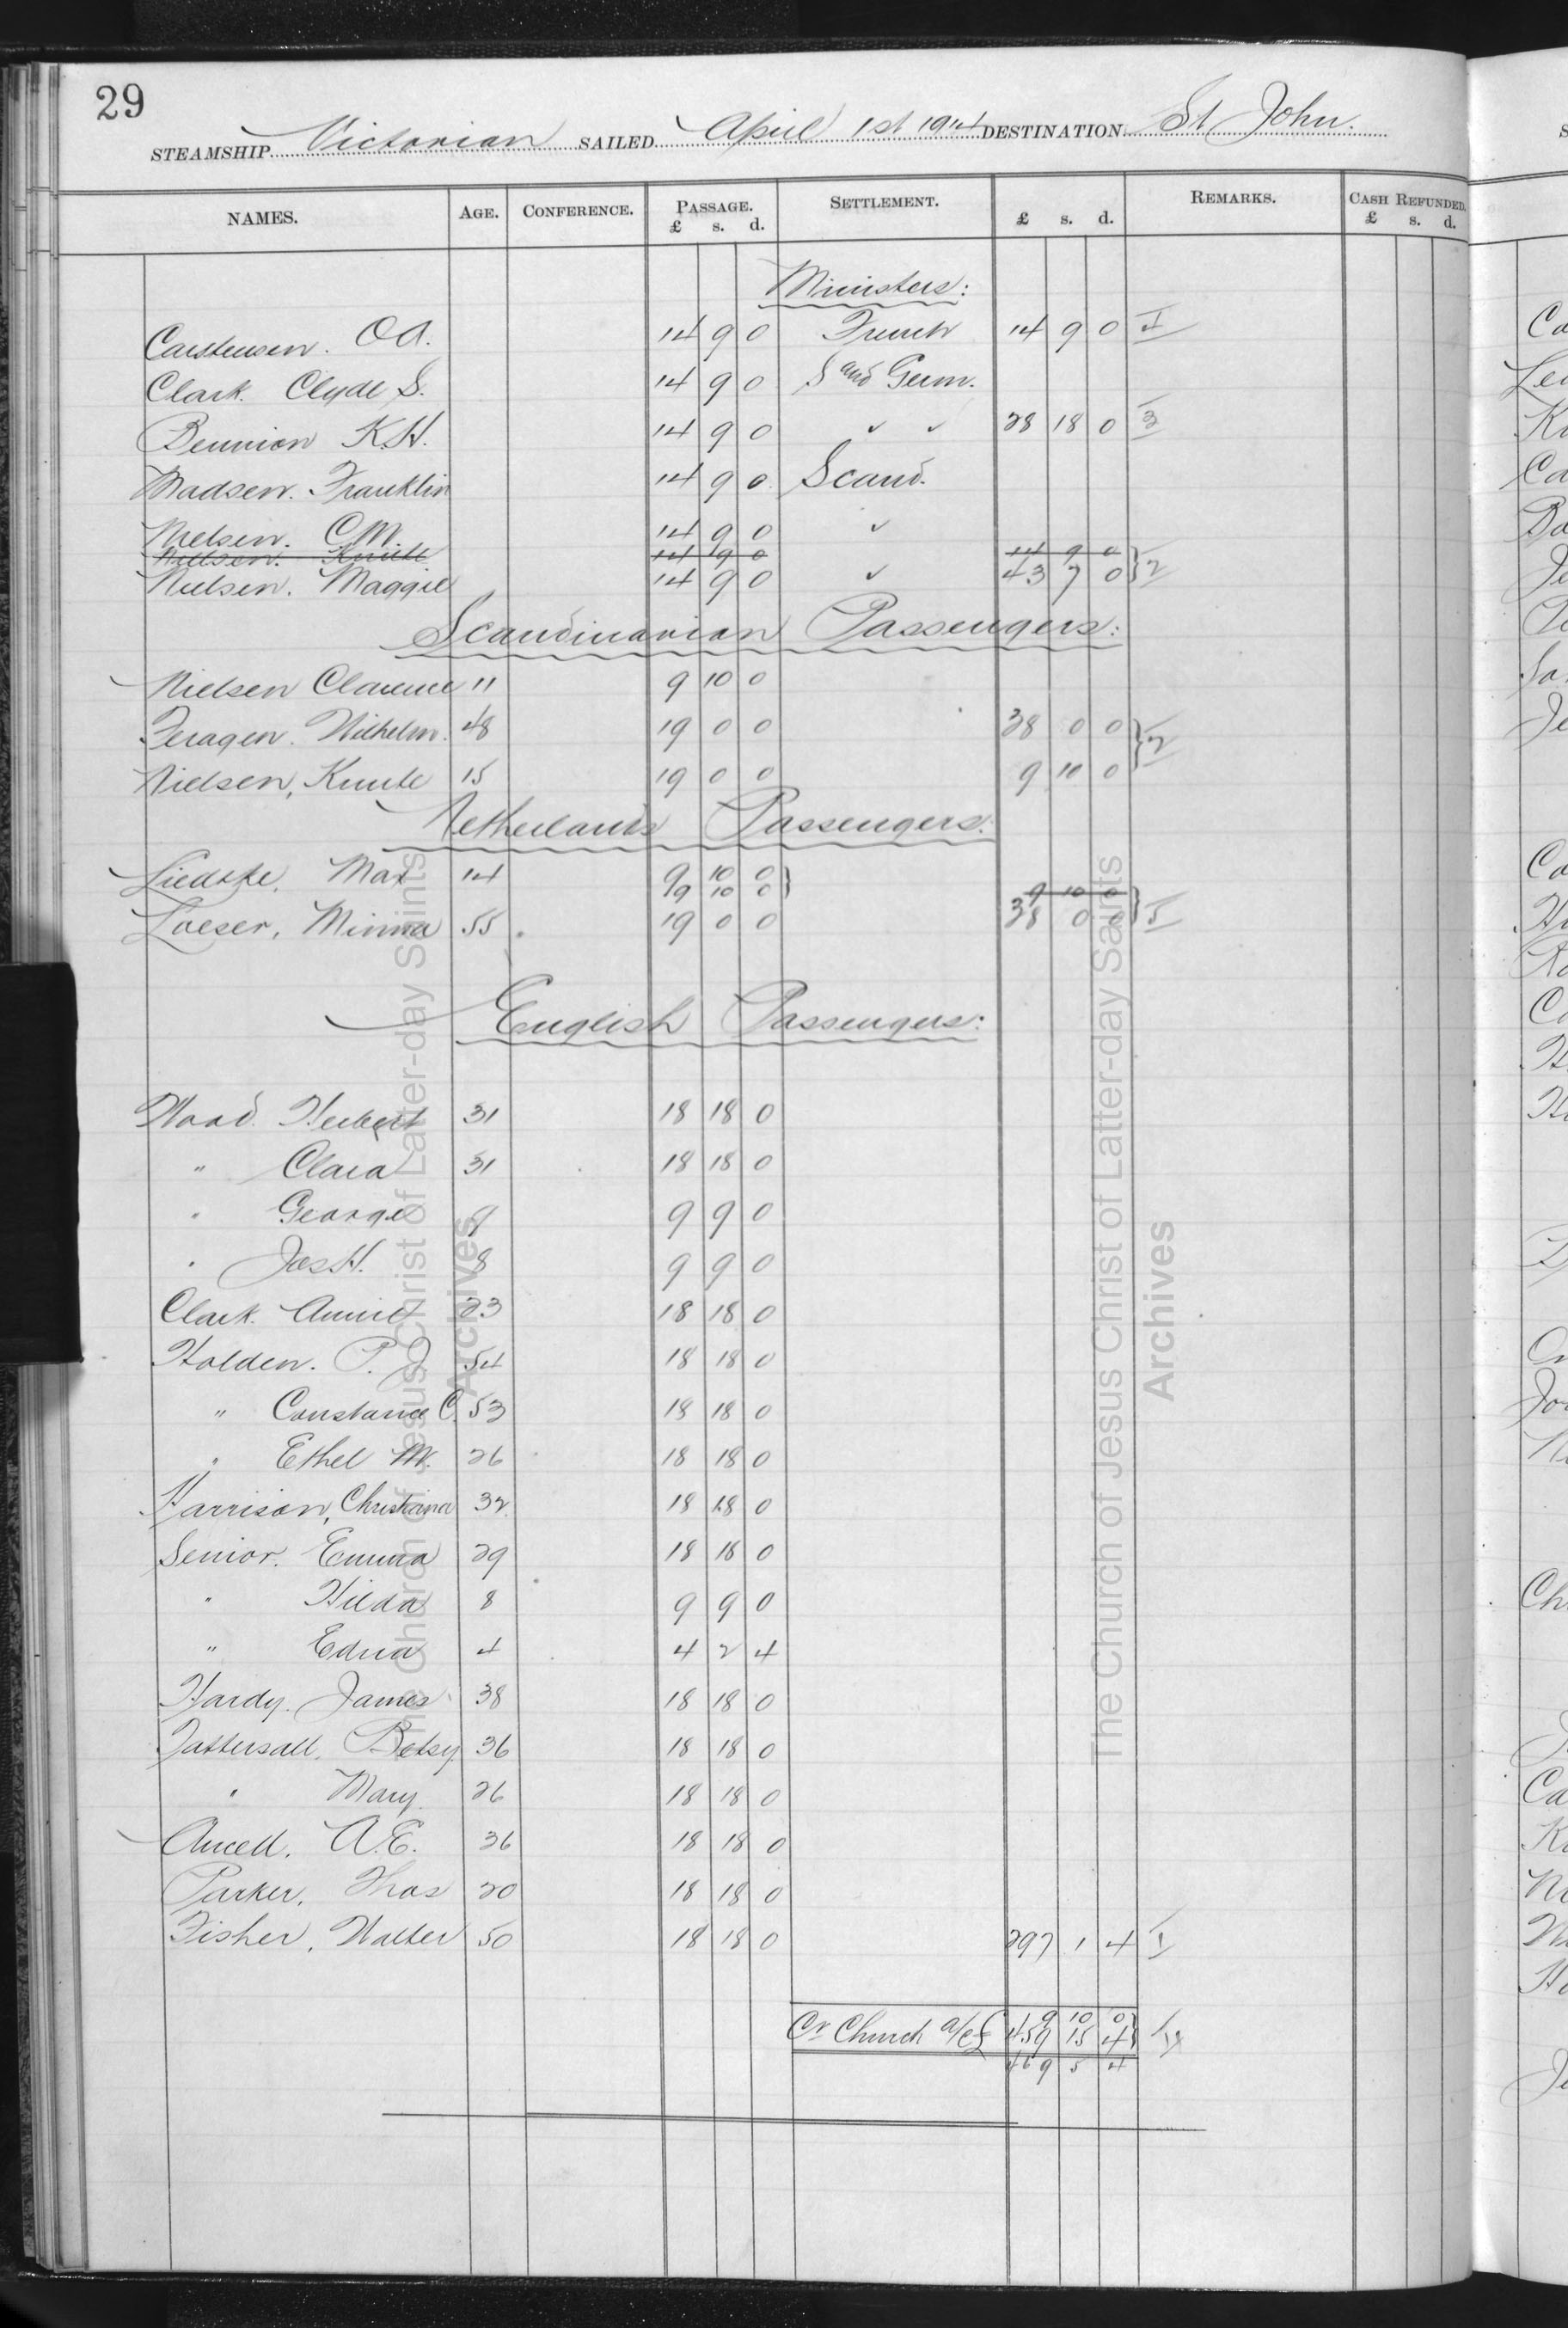 29
STEAMSHIP Victorian SAILED April 1st 1914 DESTINATION St John.
NAMES. AGE. CONFERENCE. PASSAGE. £ s. d. SETTLEMENT. £ s. d. REMARKS. CASH REFUNDED. £ s. d.
Ministers:
Carstensen. O A. 14 9 0 French 14 9 0 I
Clark. Clyde S. 14 9 0 S and Germ.
Bennion K.H. 14 9 0 " " 28 18 0 3
Madsen. Franklin 14 9 0 Scand.
Nielsen. C M. 14 9 0 "
Nielsen. Knute 14 9 0 14 9 0
Nielsen. Maggie 14 9 0 " 43 7 0 } 2
Scandinavian Passengers:
Nielsen Clarence 11 9 10 0
Feragen. Wilhelm. 48 19 0 0 38 0 0
Nielsen, Knute 15 19 0 0 9 10 0 } 2
Netherlands Passengers:
Liedtke, Max 14 9 10 0
9 10 0 } 9 10 0
Loeser, Minna 55 19 0 0 38 0 0 }
English Passengers:
Wood. Herbert 31 18 18 0
" Clara 31 18 18 0
" George 9 9 9 0
" Jas H. 8 9 9 0
Clark. Annie 23 18 18 0
Holden. P. J 54 18 18 0
" Constance C. 53 18 18 0
" Ethel M. 26 18 18 0
Harrison, Christiana 32 18 18 0
Senior. Emma 29 18 18 0
" Hilda 8 9 9 0
" Edna 4 4 2 4
Hardy. James 38 18 18 0
Tattersall, Betsy 36 18 18 0
" Mary 26 18 18 0
Ancell. A.E. 36 18 18 0
Parker, Thos 20 18 18 0
Fisher, Walter 50 18 18 0 297 1 4 I
9 10 0
Cr Church a/c £ 459 15 4 }
469 5 4
The Church of Jesus Christ of Latter-day Saints
Archives
The Church of Jesus Christ of Latter-day Saints
Archives